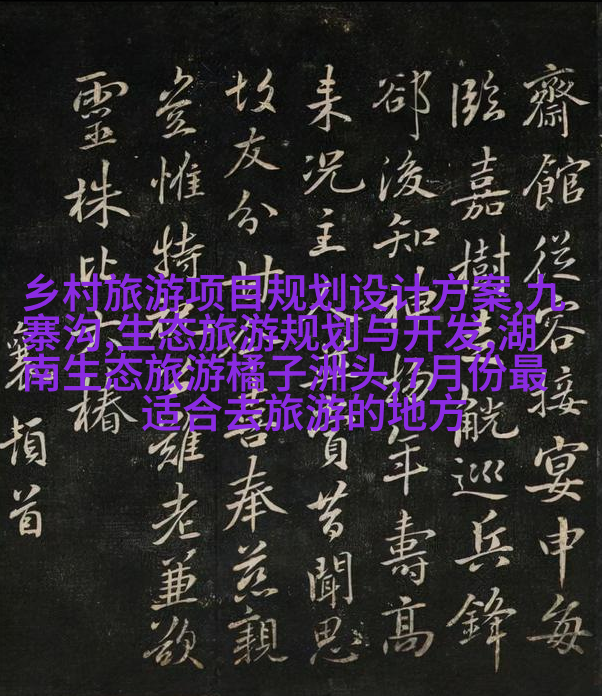 乡村旅游项目规划设计方案,九
寨沟,生态旅游规划与开发,湖
南生态旅游橘子洲头,7月份最
适合去旅游的地方
齋館從容接宴申每
臨嘉樹去觥巡兵鋒
郤後知神物年壽高
来況主人昔聞思
故友分甘喜奉慈親
豈惟特雖老兼欲
靈株比椿
襄頓首